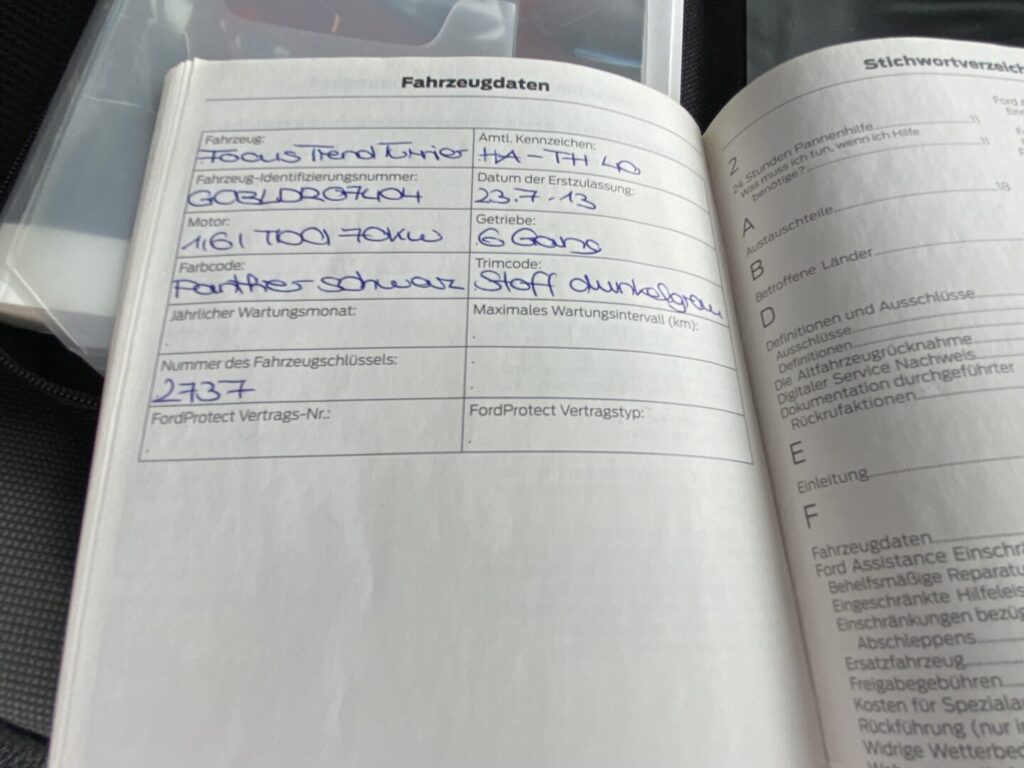 Fahrzeugdaten
Fahrzeug:
Focus Trend Turnier
Amtl. Kennzeichen:
HA-TH 40
Fahrzeug-Identifizierungsnummer:
GCBLDR07404
Datum der Erstzulassung:
23.7.13
Motor:
1,6l TDCi 70KW
Getriebe:
6 Gang
Farbcode:
Panther schwarz
Trimcode:
Stoff dunkelgrau
Jährlicher Wartungsmonat:
Maximales Wartungsintervall (km):
Nummer des Fahrzeugschlüssels:
2737
FordProtect Vertrags-Nr.:
FordProtect Vertragstyp:
Stichwortverzeich
2
24 Stunden Pannenhilfe...11
Was muss ich tun, wenn ich Hilfe
benötige?...11
A
Austauschteile...18
B
Betroffene Länder...
D
Definitionen und Ausschlüsse...
Ausschlüsse...
Definitionen...
Die Altfahrzeugrücknahme
Digitaler Service Nachweis...
Dokumentation durchgeführter
Rückrufaktionen...
E
Einleitung...
F
Fahrzeugdaten...
Ford Assistance Einschrä
Behelfsmäßige Reparatu
Eingeschränkte Hilfeleis
Einschränkungen bezüg
Abschleppens...
Ersatzfahrzeug...
Freigabegebühren...
Kosten für Speziala
Rückführung (nur i
Widrige Wetterbed